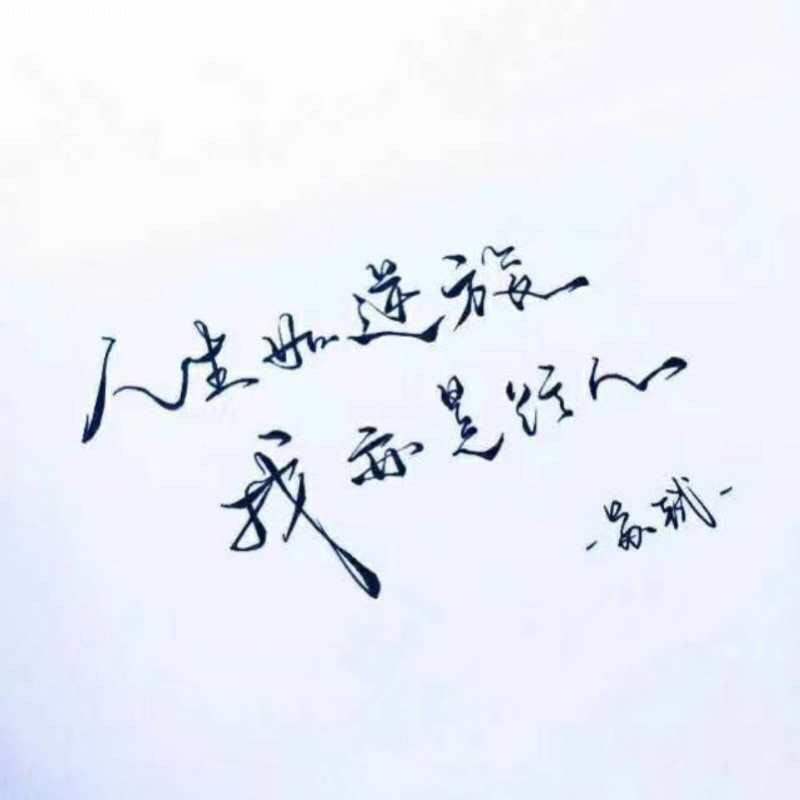 人生如逆旅
我亦是行人
-苏轼-